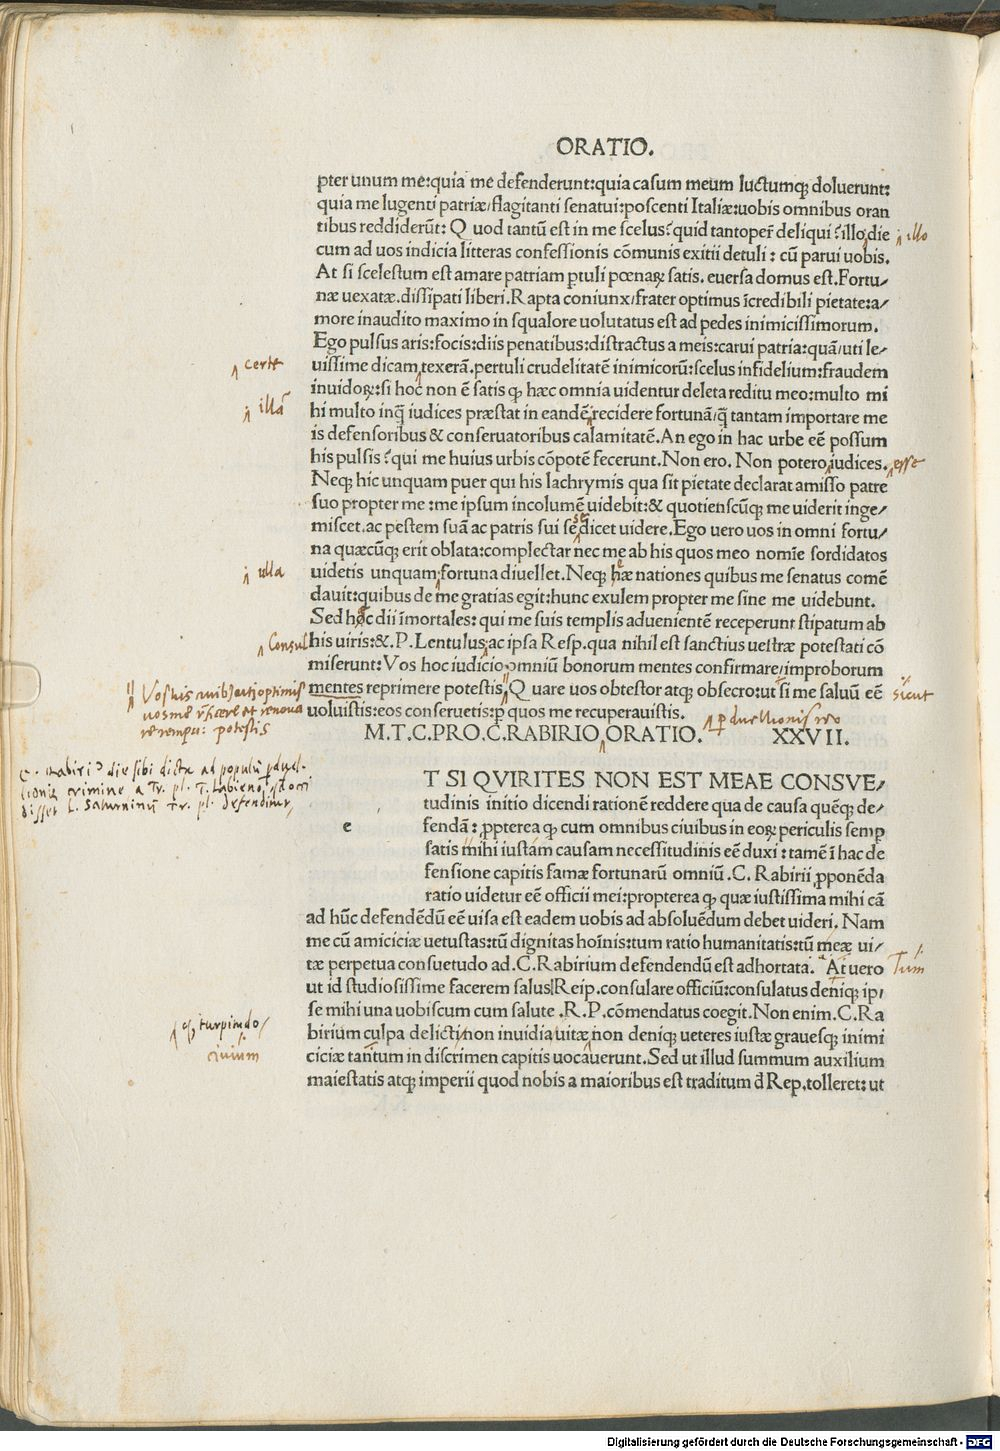 ORATIO.
pter unum me:quia me defenderunt:quia casum meum luctumq; doluerunt:
quia me lugenti patriæ/flagitanti senatui:poscenti Italiæ:uobis omnibus oran
tibus reddiderūt: Q uod tantū est in me scelus?quid tantoper̄ deliqui?illo,die
illo
cum ad uos indicia litteras confessionis cōmunis exitii detuli: cū parui uobis.
At si scelestum est amare patriam ꝑtuli pœnaꝝ satis. euersa domus est.Fortu/
næ uexatæ.dissipati liberi.Rapta coniunx/frater optimus īcredibili pietate:a/
more inaudito maximo in squalore uolutatus est ad pedes inimicissimorum.
Ego pulsus aris:focis:diis penatibus:distractus a meis:carui patria:quā/uti le/
certe
uissime dicam texerā.pertuli crudelitatē inimicorū:scelus infidelium:fraudem
inuidoꝝ:si hoc non ē satis ꝙ hæc omnia uidentur deleta reditu meo:multo mi
illā
hi multo inq̄ iudices præstat in eandē recidere fortunā/q̄ tantam importare me
is defensoribus & conseruatoribus calamitatē.An ego in hac urbe eē possum
his pulsis?qui me huius urbis cōpotē fecerunt.Non ero. Non potero iudices.
esse
Neq; hic unquam puer qui his lachrymis qua sit pietate declarat amisso patre
suo propter me:me ipsum incolumē uidebit:& quotienscūq; me uiderit inge/
miscet.ac pestem suā ac patris sui se dicet uidere.Ego uero uos in omni fortu/
na quæcūq; erit oblata:complectar nec me ab his quos meo nomīe sordidatos
ulla
uidetis unquam fortuna diuellet.Neq; hæ nationes quibus me senatus comē
dauit:quibus de me gratias egit:hunc exulem propter me sine me uidebunt.
Sed hoc dii īmortales: qui me suis templis aduenientē receperunt stipatum ab
Consul
his uiris:&.P.Lentulus;ac ipsa Resp.qua nihil est sanctius uestræ potestati cō
miserunt:Vos hoc iudicio omniū bonorum mentes confirmare/improborum
mentes reprimere potestis.Q uare uos obtestor atq; obsecro:ut si me saluū eē
sicut
uoluistis:eos conseruetis:ꝑ quos me recuperauistis.
ꝑduellionis reo
M.T.C.PRO.C.RABIRIO ORATIO. XXVII.
T SI QVIRITES NON EST MEAE CONSVE/
tudinis initio dicendi rationē reddere qua de causa quēq; de/
e fendā: ꝓpterea ꝙ cum omnibus ciuibus in eoꝝ periculis semꝑ
satis mihi iustam causam necessitudinis eē duxi: tamē ī hac de
fensione capitis famæ fortunarū omniū.C. Rabirii ꝓponēda
ratio uidetur eē officii mei:propterea ꝙ quæ iustissima mihi cā
ad hūc defendēdū eē uisa est eadem uobis ad absoluēdum debet uideri. Nam
me cū amiciciæ uetustas:tū dignitas hoīnis:tum ratio humanitatis:tū meæ ui/
tæ perpetua consuetudo ad.C.Rabirium defendendū est adhortata. At uero
Tum
ut id studiosissime facerem salus Reip.consulare officiū:consulatus deniq; ip/
se mihi una uobiscum cum salute .R.P.cōmendatus coegit.Non enim.C.Ra
turpitudo
birium culpa delicti non inuidia uitæ non deniq; ueteres iustæ grauesq; inimi
ciuium
ciciæ tantum in discrimen capitis uocauerunt.Sed ut illud summum auxilium
maiestatis atq; imperii quod nobis a maioribus est traditum d̄ Rep.tolleret: ut
Digitalisierung gefördert durch die Deutsche Forschungsgemeinschaft - DFG